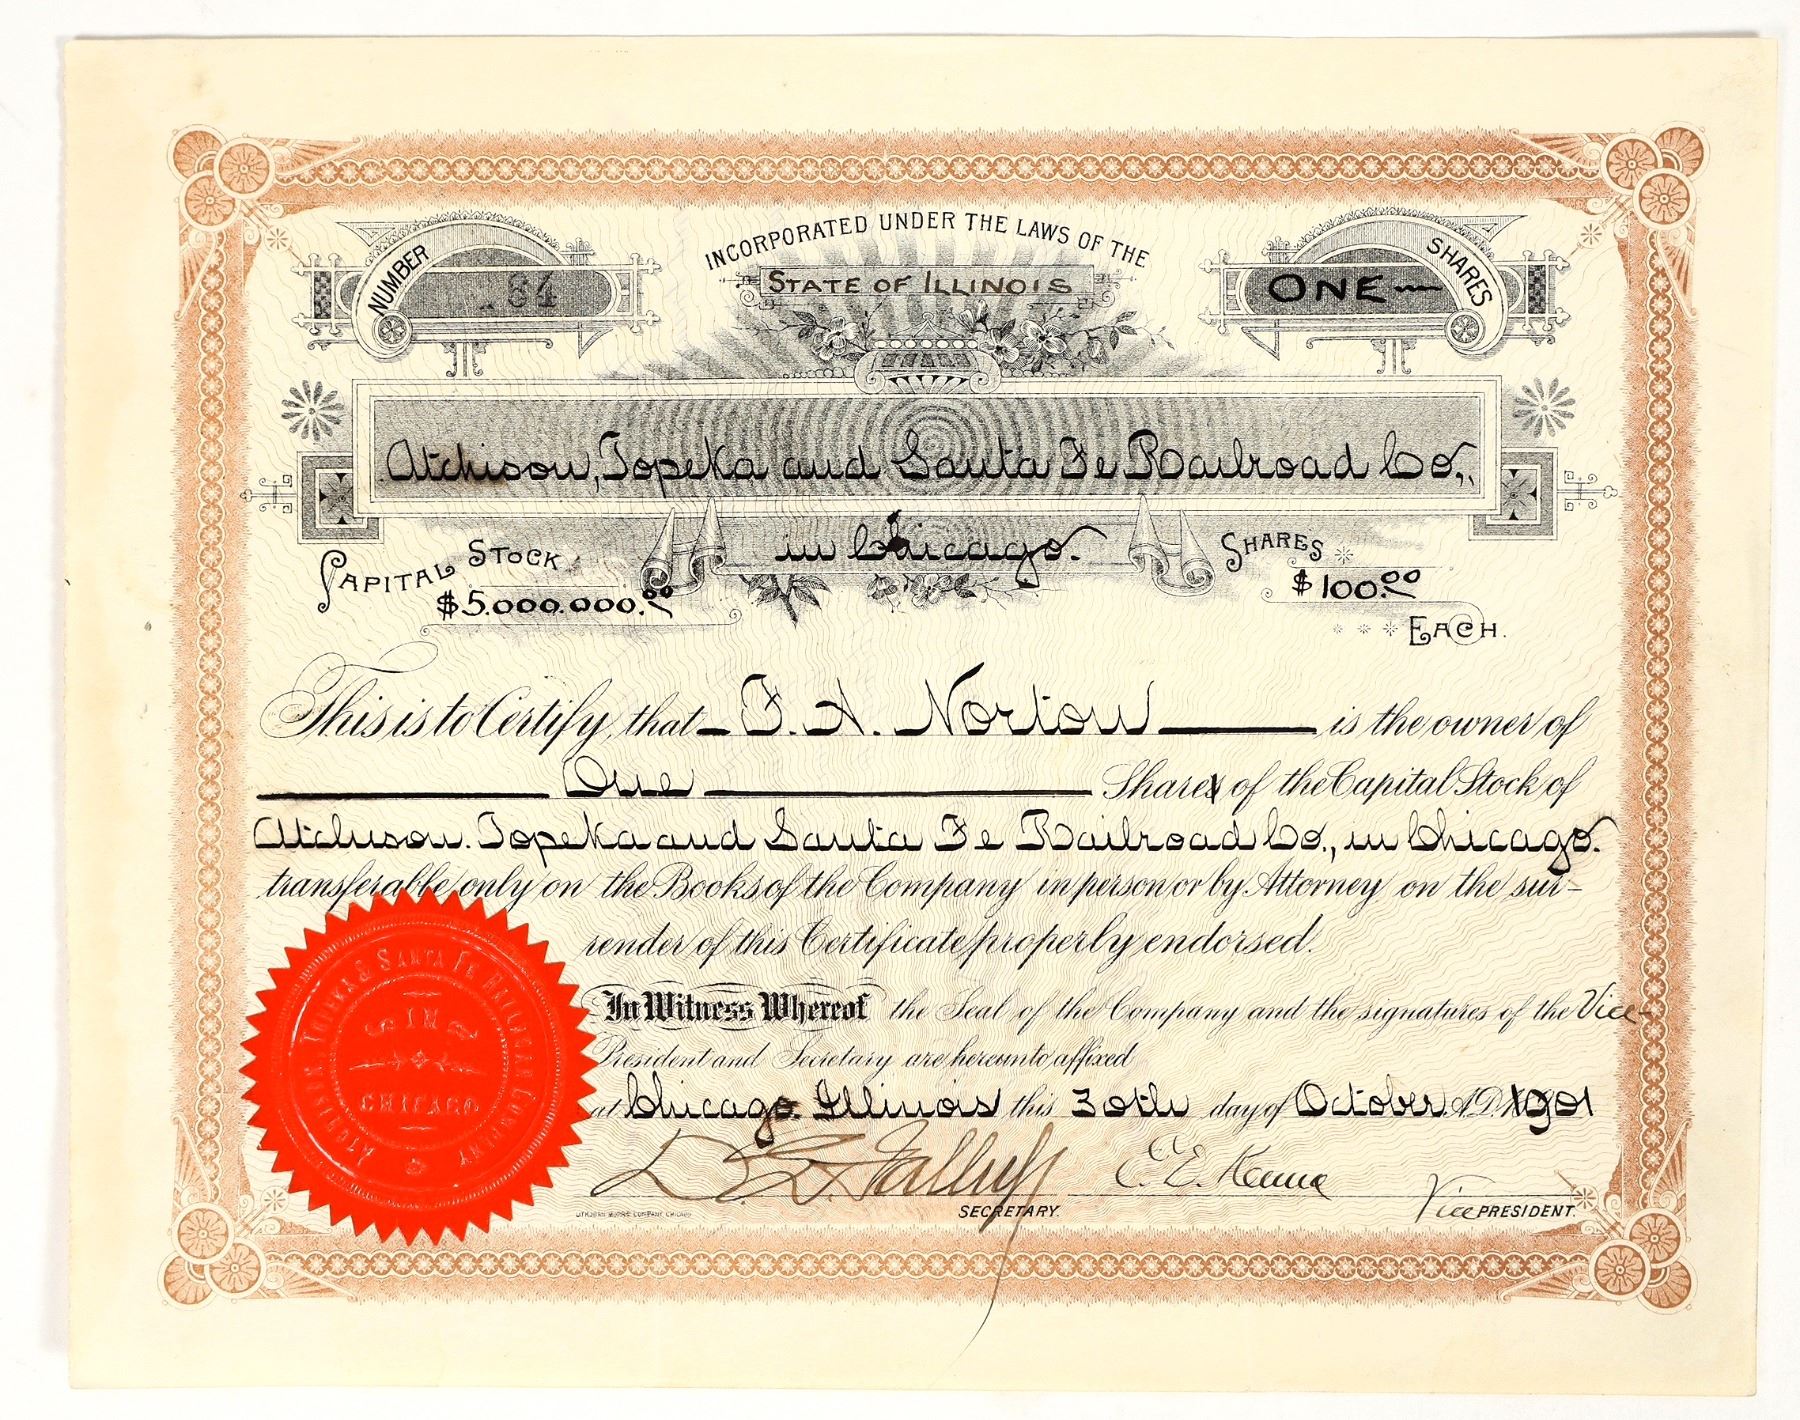 INCORPORATED UNDER THE LAWS OF THE
STATE OF ILLINOIS
NUMBER
84
ONE
SHARES
Atchison, Topeka and Santa Fe Railroad Co.,
in Chicago.
CAPITAL STOCK
$5.000.000.00
SHARES
$100.00
EACH.
This is to Certify, that F. A. Norton is the owner of
One Shares of the Capital Stock of
Atchison. Topeka and Santa Fe Railroad Co., in Chicago.
transferable only on the Books of the Company in person or by Attorney on the sur-
render of this Certificate properly endorsed.
In Witness Whereof the Seal of the Company and the signatures of the Vice-
President and Secretary are hereunto affixed
at Chicago. Illinois this 30th day of October A.D. 1901
E. E. Keene
SECRETARY.
Vice PRESIDENT.
ATCHISON, TOPEKA & SANTA FE RAILROAD COMPANY
IN
CHICAGO